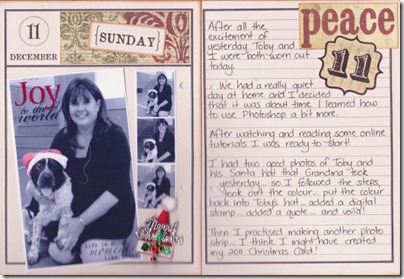 11
DECEMBER
{SUNDAY}
Joy
to the
world
Merry
Christmas
Life is
moments
peace
11
After all the
excitement of
yesterday Toby and
I were both worn out
today.
We had a really quiet
day at home and I decided
that it was about time I learned how
to use Photoshop a bit more.
After watching and reading some online
tutorials I was ready to start!
I had two good photos of Toby and
his Santa hat that Grandma took
yesterday... so I followed the steps,
took out the colour... put the colour
back into Toby's hat... added a digital
stamp... added a quote... and voila!
Then I practised making another photo
strip... I think I might have created
my 2011 Christmas Card!